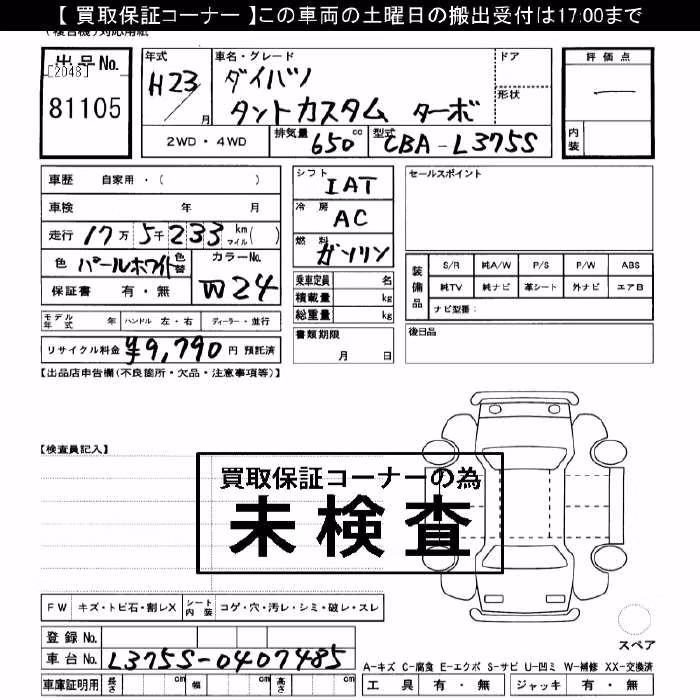 【 買取保証コーナー 】この車両の土曜日の搬出受付は17:00まで
出品No.
[2048]
81105
年式
H23/
月
車名・グレード
ダイハツ
タントカスタム ターボ
ドア
形状
評価点
―
内装
2WD・4WD
排気量 650 cc
型式 CBA-L375S
車歴 自家用・( )
車検 年 月
走行 17万5千233 km マイル( )
色 パールホワイト 色替
カラーNo. W24
保証書 有・無
シフト IAT
冷房 AC
燃料 ガソリン
乗車定員 名
積載量 kg
総重量 kg
書類期限
月 日
セールスポイント
装備品
S/R 純A/W P/S P/W ABS
純TV 純ナビ 革シート 外ナビ エアB
ナビ型番:
後日品
モデル年式 年 ハンドル 左・右 ディーラー・並行
リサイクル料金 ¥9,790 円 預託済
【出品店申告欄(不良箇所・欠品・注意事項等)】
【検査員記入】
買取保証コーナーの為
未検査
FW キズ・トビ石・割レX シート内装 コゲ・穴・汚レ・シミ・破レ・スレ
スペア
登録No.
車台No. L375S-0407485
車庫証明用 長さ cm 幅 cm 高さ cm
A-キズ C-腐食 E-エクボ S-サビ U-凹ミ W-補修 XX-交換済
工具 有・無 ジャッキ 有・無